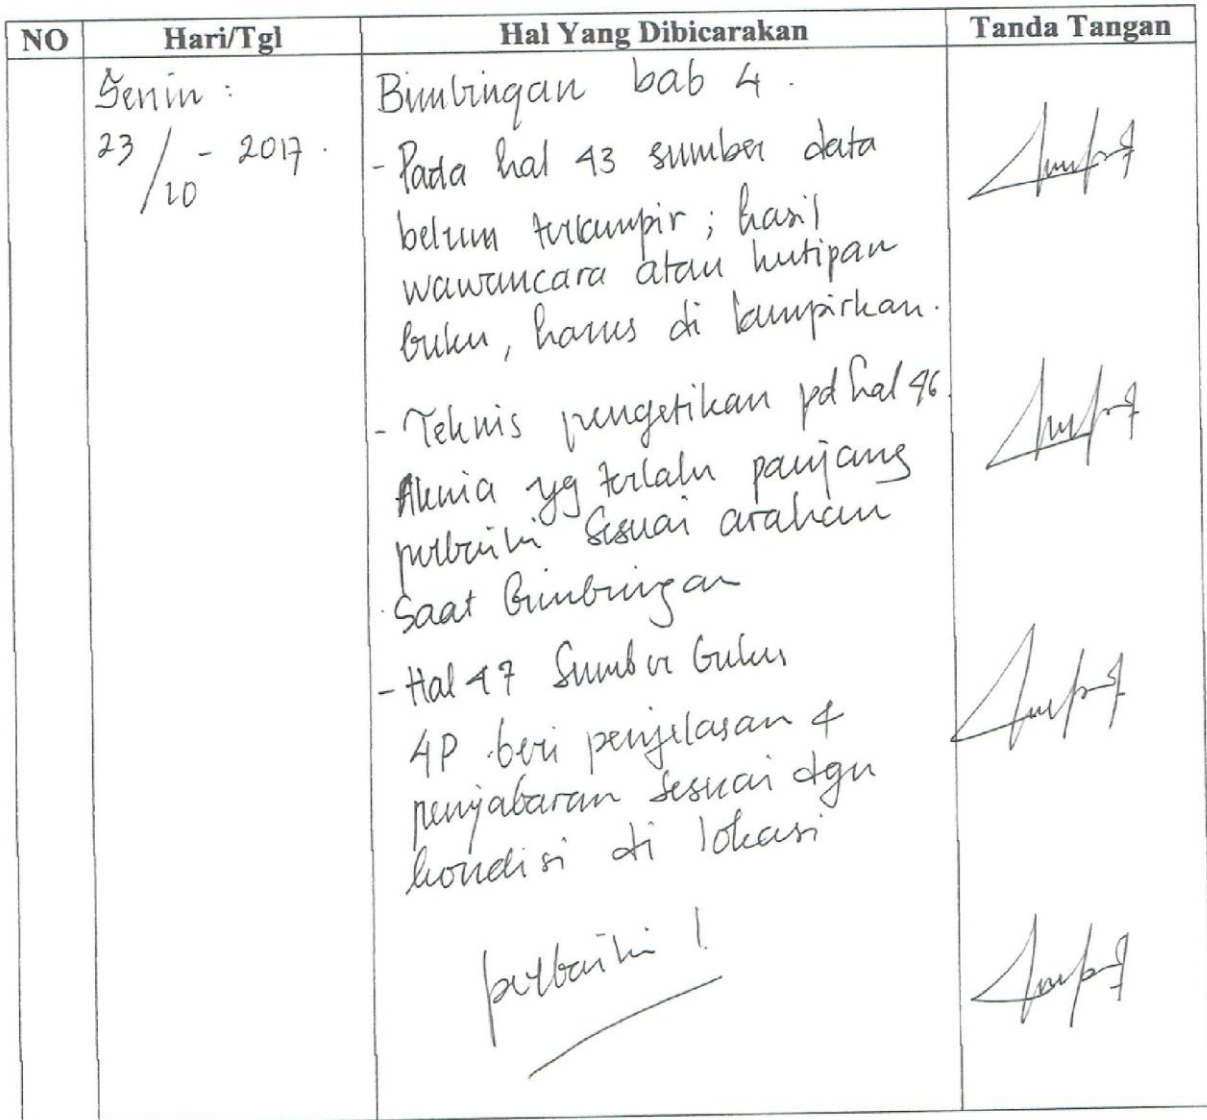 NO Hari/Tgl Hal Yang Dibicarakan Tanda Tangan
Senin :
23/10 - 2017.
Bimbingan bab 4.
- Pada hal 43 sumber data
belum terlampir ; hasil
wawancara atau kutipan
buku, harus di lampirkan.
- Teknis pengetikan pd hal 46.
yg terlalu panjang
perbaiki sesuai arahan
saat Bimbingan
- Hal 47 Sumber buku
4P beri penjelasan &
penjabaran sesuai dgn
kondisi di lokasi
perbaiki !